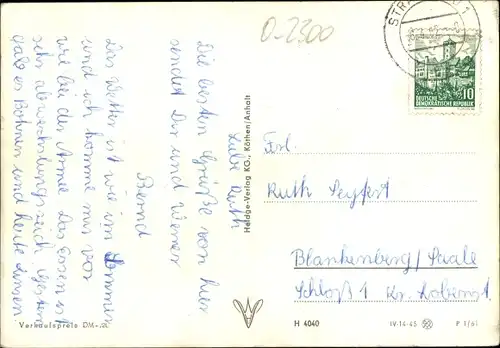 O-2300
STRA
1
10
DEUTSCHE
DEMOKRATISCHE REPUBLIK
Liebe Ruth
Die besten Grüße von hier
sendet Dir und Wiener
Bernd
Das Wetter ist wie im Sommer
und ich komme mir vor
wie bei der Armee Das Essen ist
sehr abwechslungsreich gestern
gab es Bohnen und heute Linsen
Heldge-Verlag KG., Köthen/Anhalt
Frl.
Ruth Seyfert
Blankenberg/Saale
Schloß 1 Kr. Lobenst.
Verkaufspreis DM
H 4040
IV-14-45
P 1/61